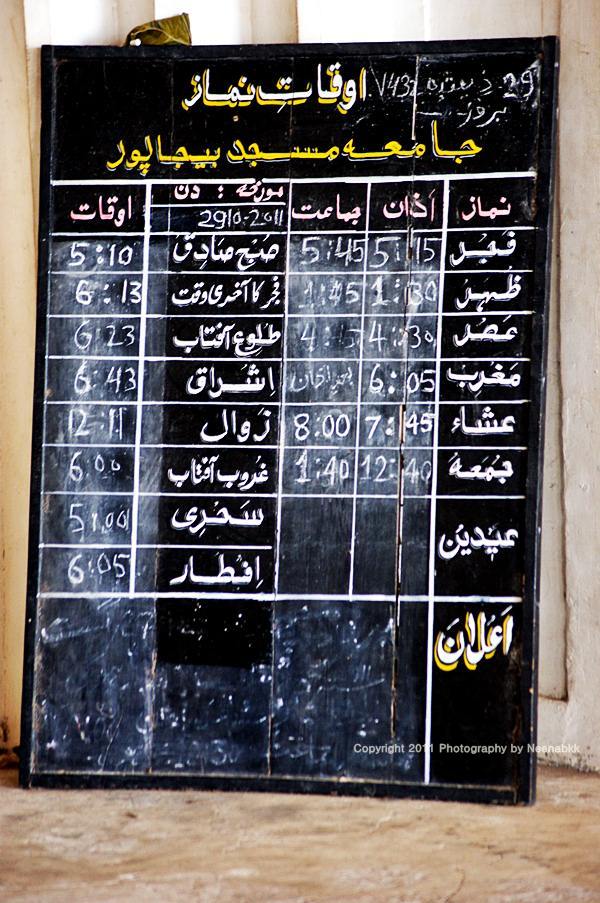 اوقات نماز
جامعہ مسجد بیجاپور
نماز اَذان جماعت مورخہ : دن اوقات
29-10-2011
فجر 5:15 5:45 صُبح صَادِق 5:10
ظہر 1:30 1:45 فجر کا آخری وقت 6:13
عصر 4:30 4:45 طلوع آفتاب 6:23
مَغرب 6:05 اِشراق 6:43
عشاء 7:45 8:00 زوال 12:11
جُمعہ 12:40 1:40 غروب آفتاب 6:00
عیدین سَحری 5:00
اِفطار 6:05
اَعلان
Copyright 2011 Photography by Neenabkk